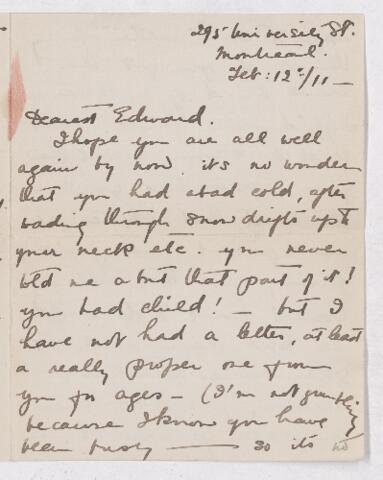 295 University St.
Montreal.
Feb: 12th/11 —
Dearest Edward.
I hope you are all well
again by now. it's no wonder
that you had a bad cold, after
wading through snow drifts up to
your neck etc. you never
told me about that part of it!
you bad child! — but I
have not had a letter, at least
a really proper one from
you for ages — (I'm not grumbling
because I know you have
been busy —— so its no